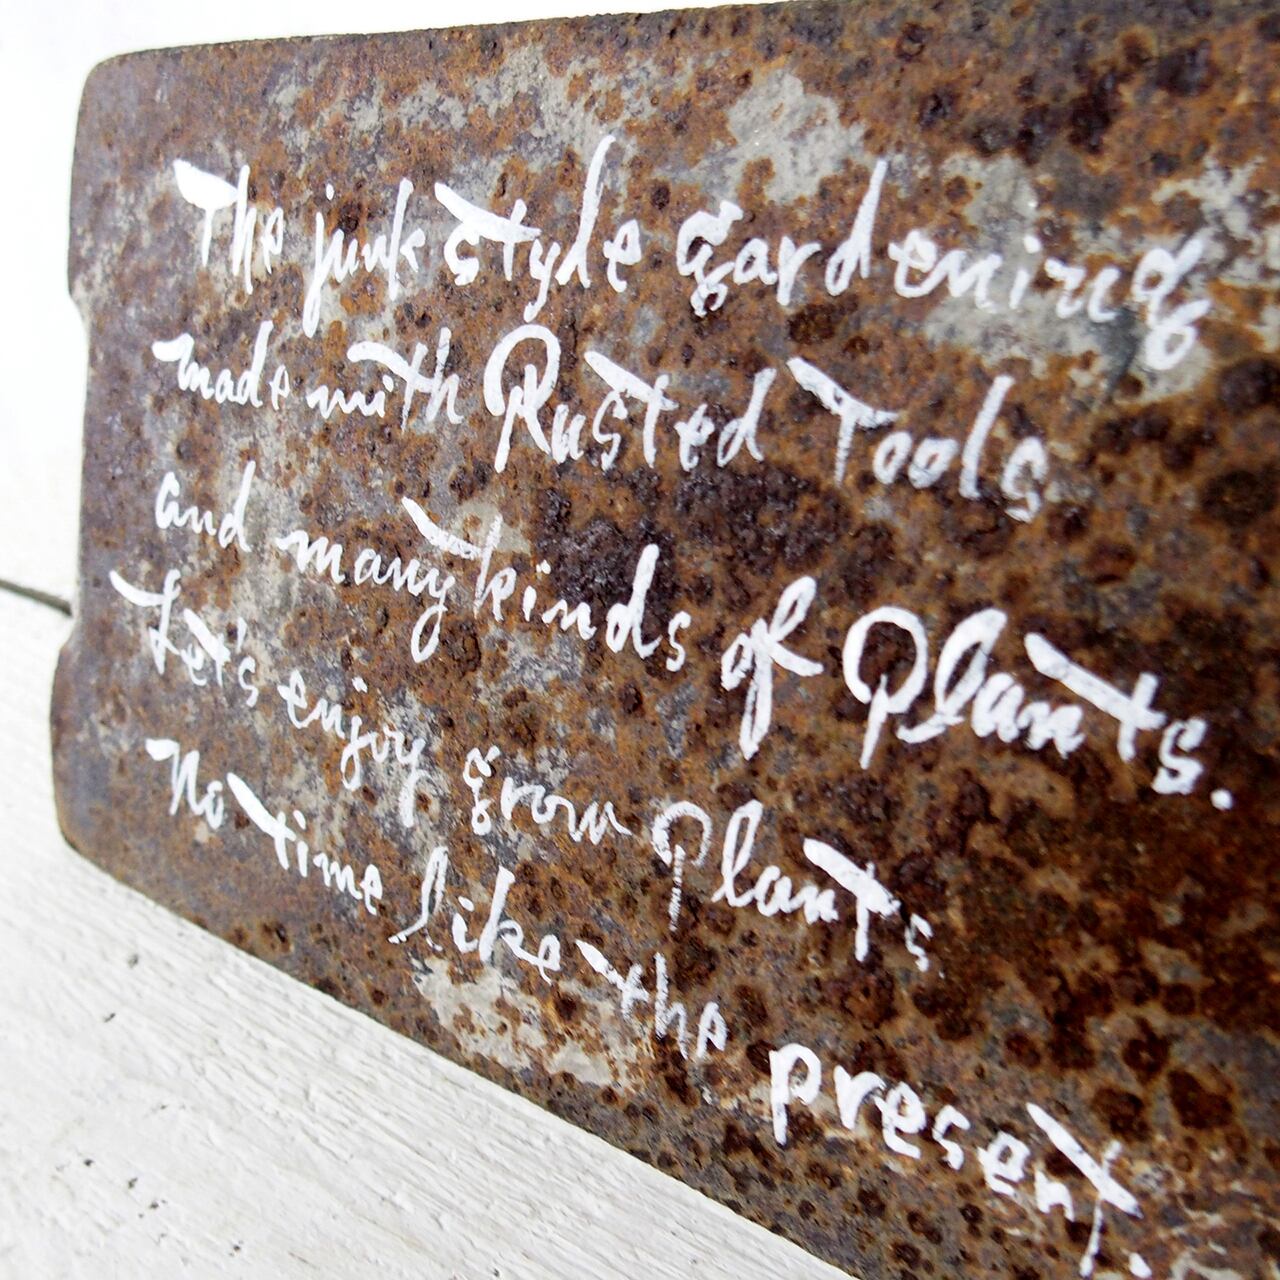 The junk style gardening
made with Rusted Tools
and many kinds of Plants.
Let's enjoy grow Plants
No time like the present.